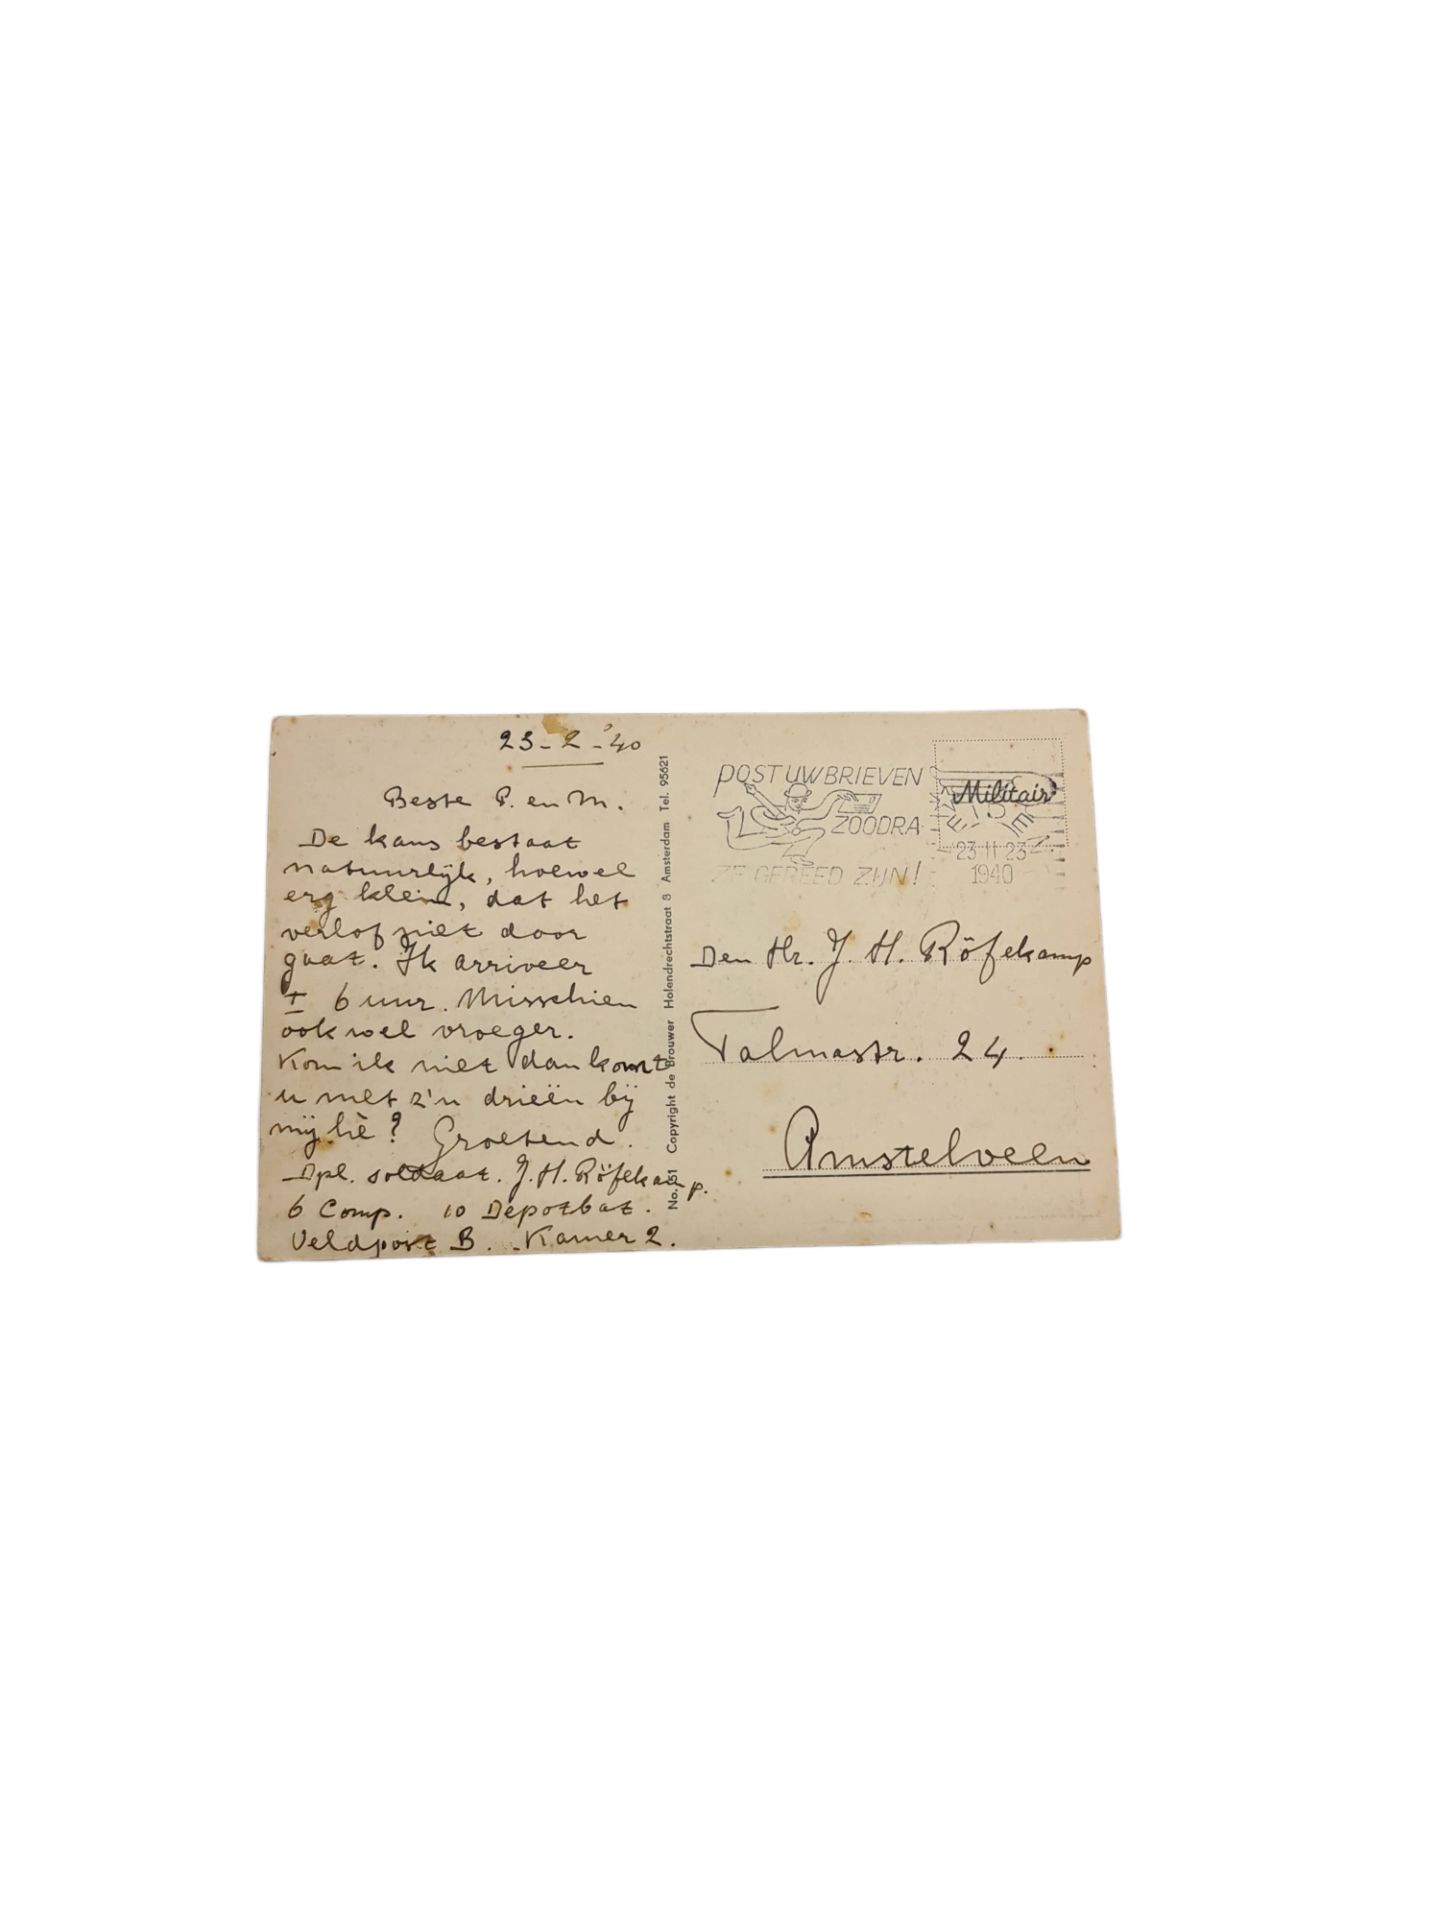 23-2-'40
Beste P. en M.
De kans bestaat
natuurlijk, hoewel
erg klein, dat het
verlof niet door
gaat. Ik arriveer
± 6 uur. Misschien
ook wel vroeger.
Kom ik niet dan komt
u met z'n drieën bij
mij hè? Groetend.
Dpl. soldaat. J. H. Röfekamp.
6 Comp. 10 Depotbat.
Veldpost B. Kamer 2.
No. 151 Copyright de Brouwer Holendrechtstraat 8 Amsterdam Tel. 95621
POST UW BRIEVEN
ZOODRA
ZE GEREED ZIJN!
Militair
LEIDEN
23 II 23
1940
Den Hr. J. H. Röfekamp
Talmastr. 24.
Amstelveen